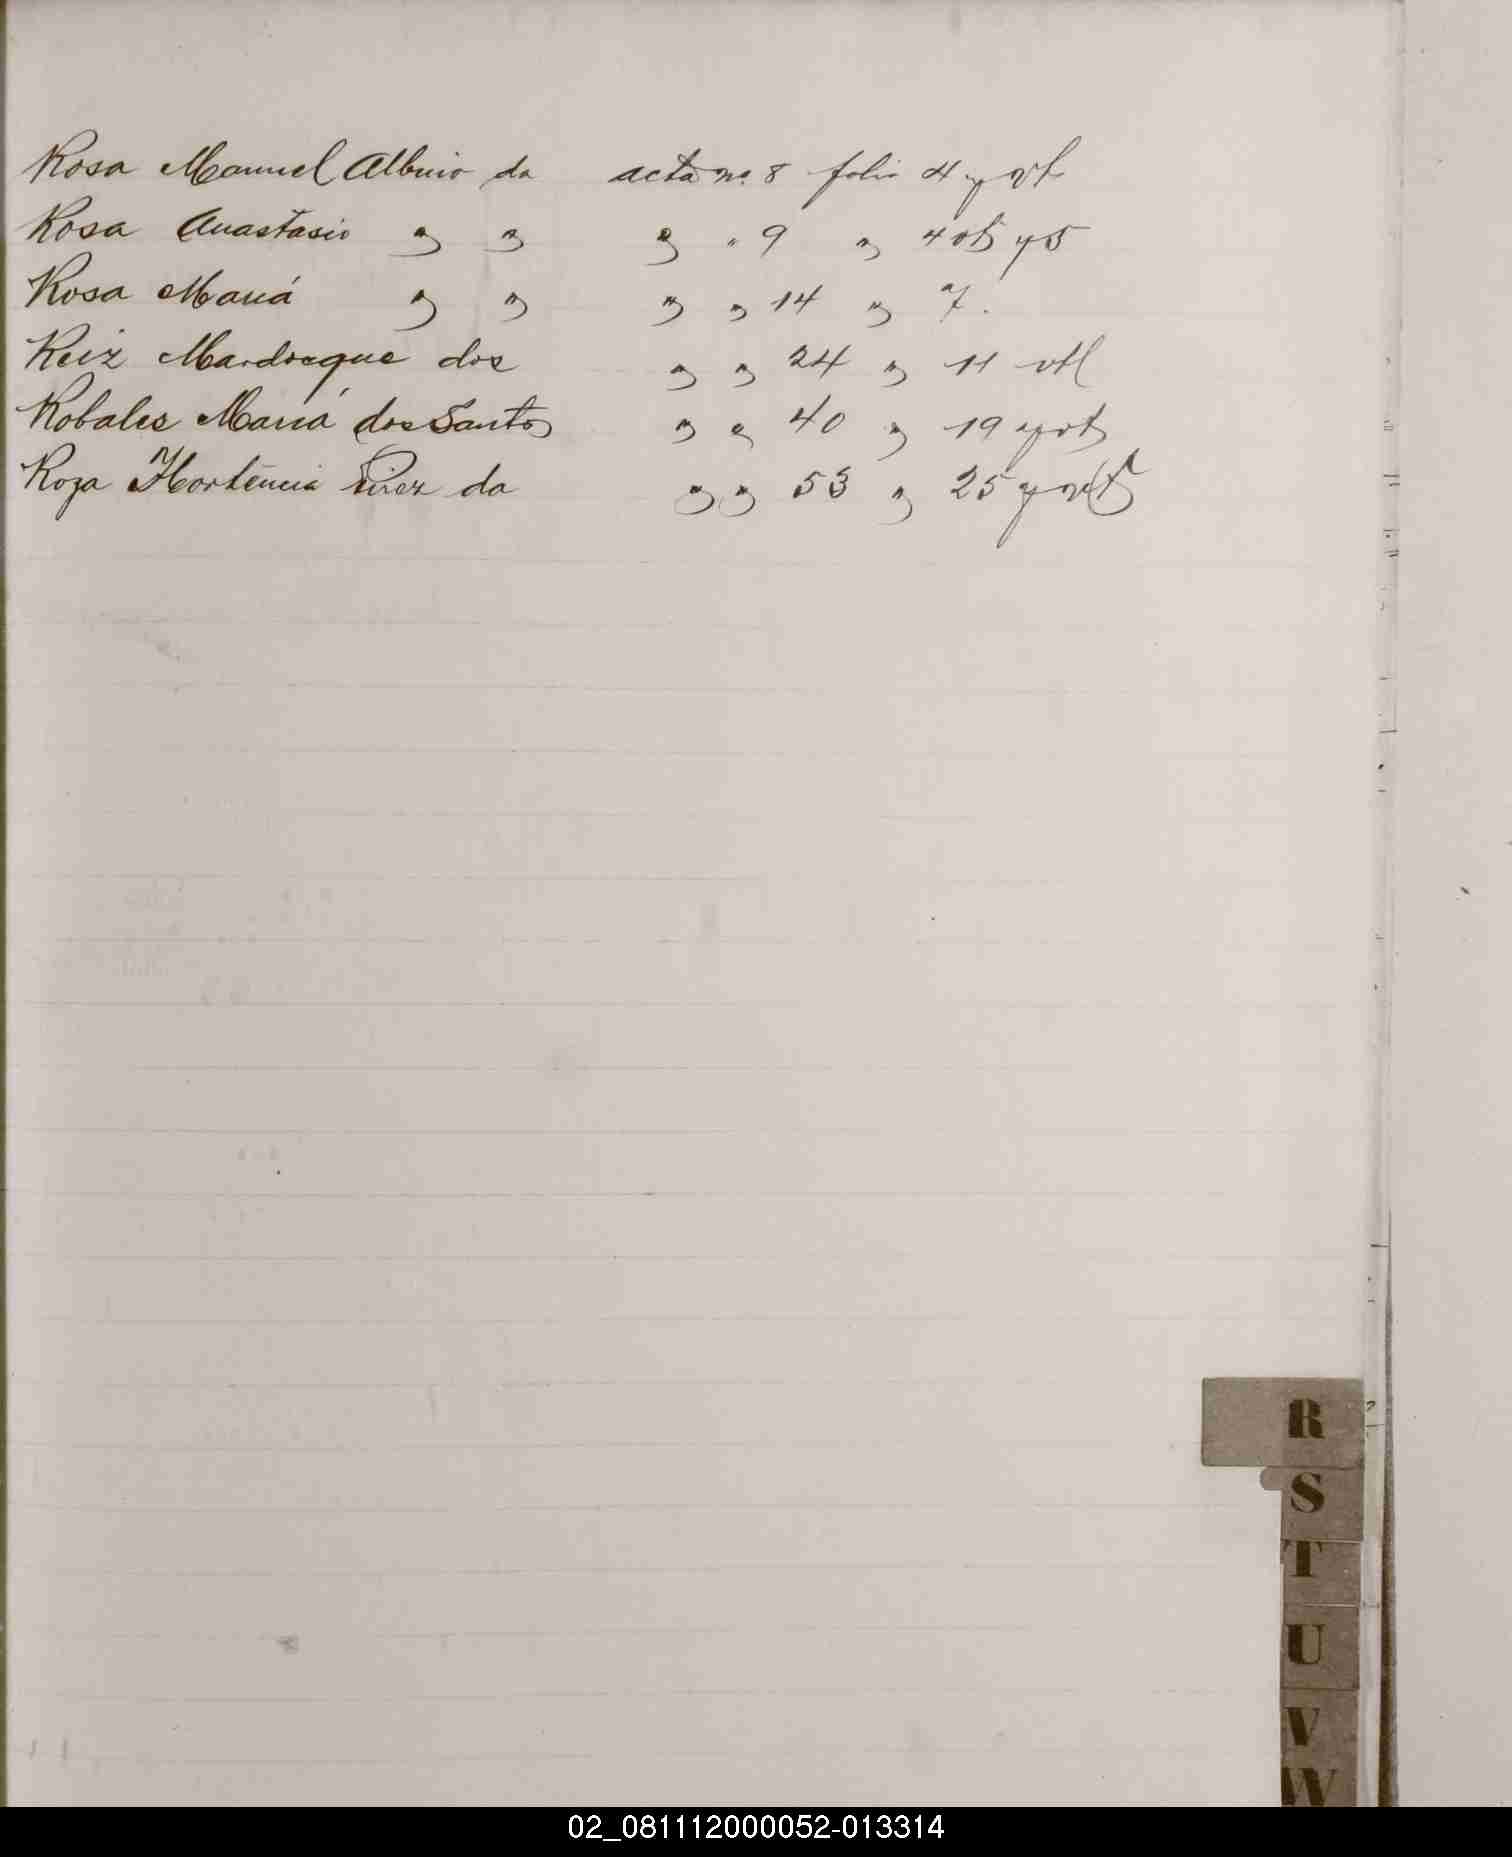 Rosa Manuel Albino da acta no. 8 folio 4 y vt
Rosa Anastasio " " " " 9 " 4 vt y 5
Rosa María " " " " 14 " 7.
Reiz Mardoqueo dos " " 24 " 11 vt
Robales María dos Santos " " 40 " 19 y vt
Roza Hortencia Pirez da " " 53 " 25 y vt
R
S
T
U
V
W
02_081112000052-013314